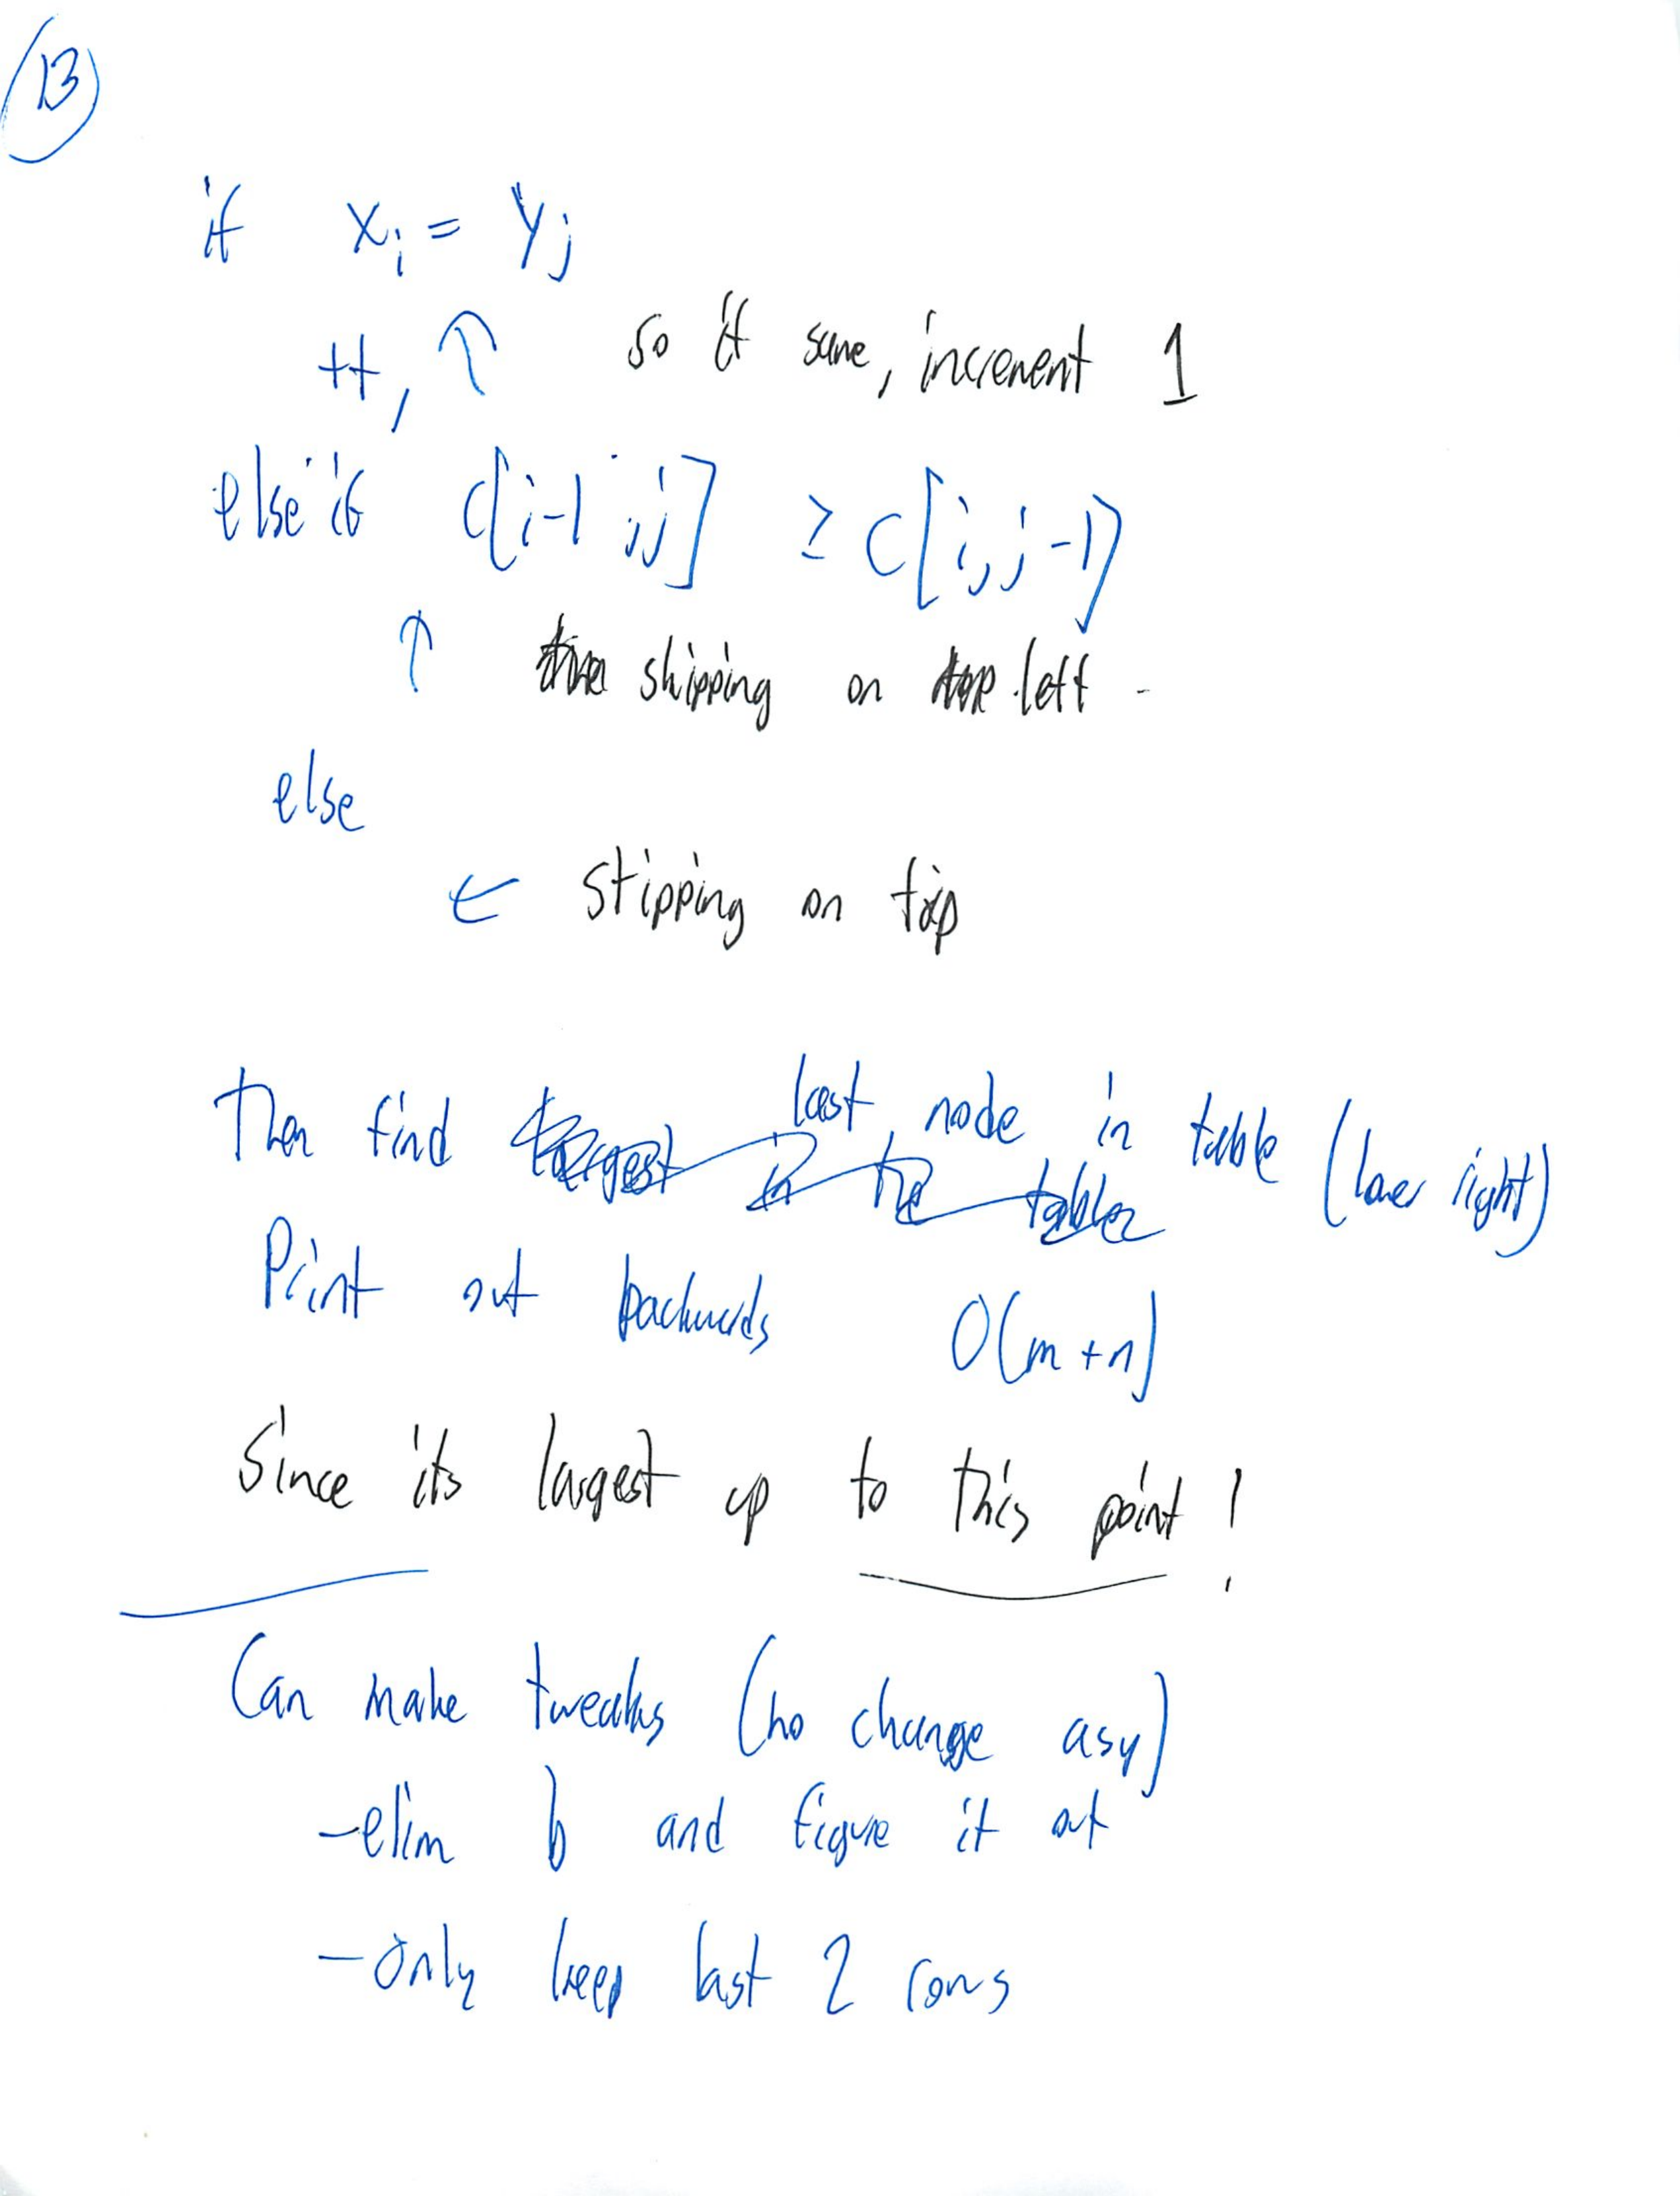 13
if Xi = Yj
++, ↑ so if same, increment 1
else if c[i-1, j] ≥ c[i, j-1]
↑ skipping on left
else
← skipping on top
Then find last node in table (lower right)
Print out backwards O(m+n)
Since its largest up to this point!
Can make tweaks (no change asy)
-elim b and figure it out
-only keep last 2 rows